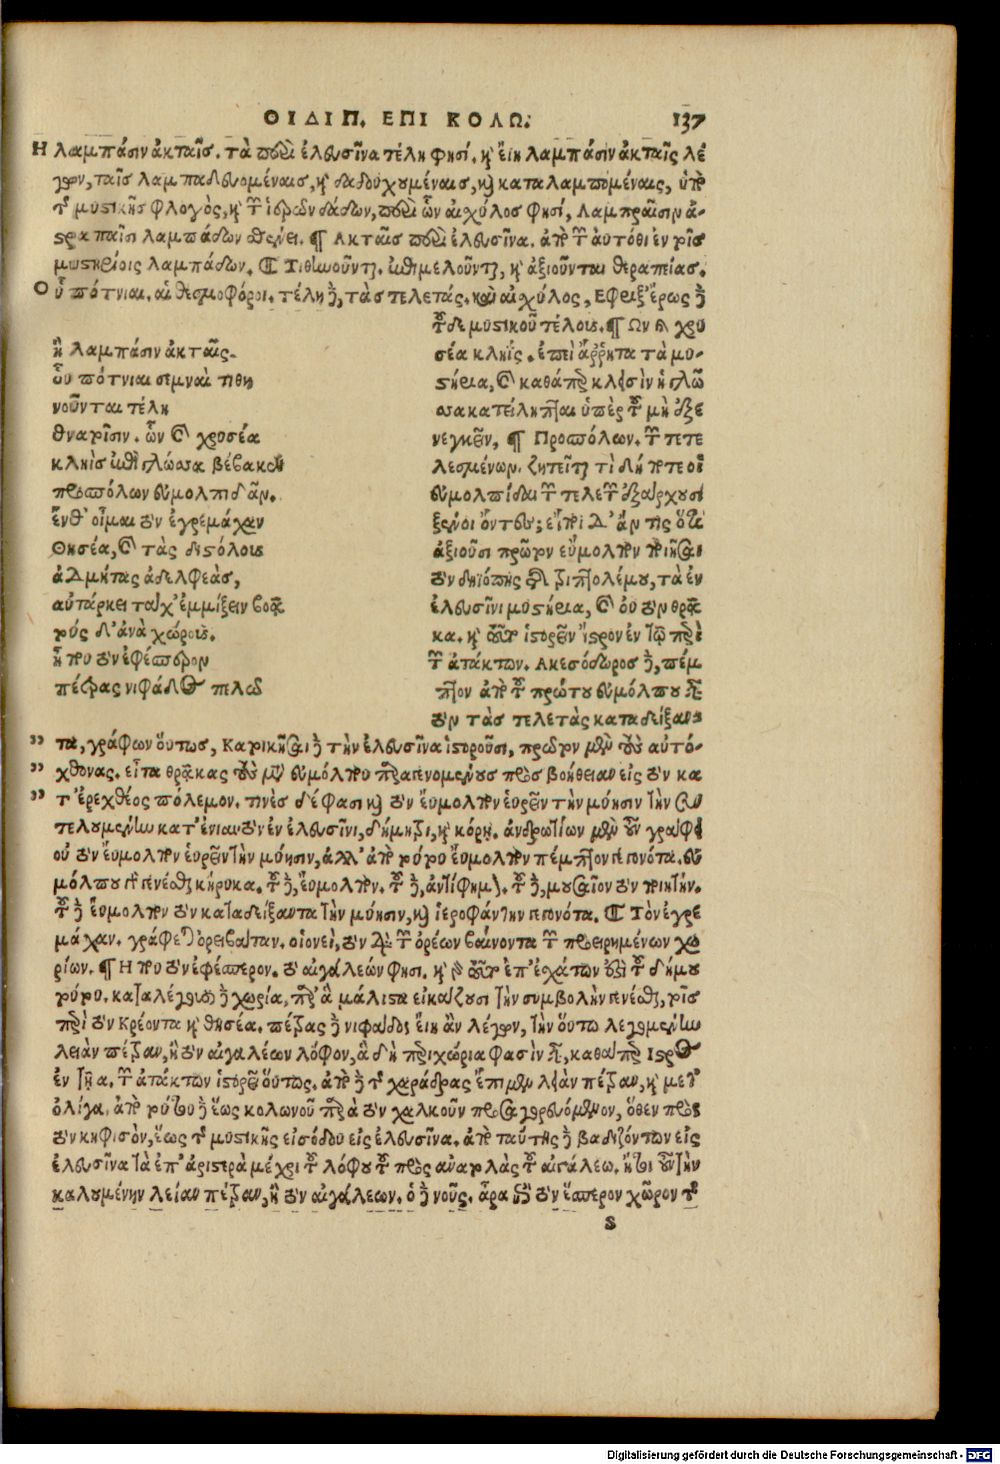 ΟΙΔΙΠ. ΕΠΙ ΚΟΛΩ. 137
Η λαμπάσιν ἀκταῖς. τὰ περὶ ἐλευσῖνα τέλη φησί. καὶ εἴη λαμπάσιν ἀκταῖς λέ
γων, ταῖς λαμπαδευομέναις, καὶ δαδουχουμέναις, καὶ καταλαμπομέναις, ὑπὸ
τῆς μυστικῆς φλογὸς, καὶ τῶν ἱερῶν δάδων, περὶ ὧν αἰχύλος φησί, Λαμπραῖσιν ἀ-
στραπαῖσι λαμπάδων σθένει. ¶ Ακταῖς περὶ ἐλευσῖνα. ἀπὸ τῶν αὐτόθι ἐν τοῖς
μυστηρίοις λαμπάδων. ¶ Τιθηνοῦνται. ἐπιμελοῦνται, καὶ ἀξιοῦνται θεραπείας.
Οὗ πότνιαι. αἱ θεσμοφόροι. τέλη δὲ, τὰς τελετάς. καὶ αἰχύλος, Εφριξ' ἔρως δὲ
τοῦδε μυστικοῦ τέλους. ¶ Ων καὶ χρυ
σέα κληΐς. ἐπεὶ ἄῤῥητα τὰ μυ-
στήρια, καὶ καθάπερ κλεισὶν ἡ γλῶσ
σα κατείληπται ὑπὲρ τοῦ μὴ ἐξε
νεγκεῖν, ¶ Προσπόλων. τῶν τετε
λεσμένων. ζητεῖται τὶ δήποτε οἱ
εὐμολπίδαι τῶν τελετῶν ἐξάρχουσι
ξένοι ὄντες; εἴποι δ' ἄν τις ὅτι
ἀξιοῦσι πρῶτον εὔμολπον ποιῆσαι
τὸν δηϊόπης τῆς τριπτολέμου, τὰ ἐν
ἐλευσῖνι μυστήρια, καὶ οὐ τὸν θρᾶ
κα. καὶ τοῦτο ἱστορεῖν ἴστρον ἐν τῷ περὶ
τῶν ἀτάκτων. Ακεσόδωρος δὲ, πέμ
πτον ἀπὸ τοῦ πρώτου εὐμόλπου εἶναι
τὸν τὰς τελετὰς καταδείξαν-
ἢ λαμπάσιν ἀκταῖς.
οὗ πότνιαι σεμναὶ τιθη
νοῦνται τέλη
θνατοῖσιν. ὧν καὶ χρυσέα
κληῒς ἐπὶ γλώσσα βέβακε
προσπόλων εὐμολπιδᾶν.
ἔνθ' οἶμαι τὸν ἐγρεμάχαν
Θησέα, καὶ τὰς διστόλους
ἀδμήτας ἀδελφεὰς,
αὐτάρκει τάχ' ἐμμίξειν βοᾷ
τούς δ' ἀνὰ χώρους.
ἤ που τὸν ἐφέσπερον
πέτρας νιφάδος πελῶσ
" τα, γράφων οὕτως, Κατοικῆσαι δὲ τὴν ἐλευσῖνα ἱστοροῦσι, πρῶτον μὲν τοὺς αὐτό-
" χθονας. εἶτα θρᾷκας τοὺς μετὰ εὐμόλπου παραγενομένους πρὸς βοήθειαν εἰς τὸν κα
" τ' ἐρεχθέος πόλεμον. τινὲς δέ φασι καὶ τὸν εὔμολπον εὑρεῖν τὴν μύησιν τὴν συν
τελουμένην κατ' ἐνιαυτὸν ἐν ἐλευσῖνι, δήμητρι, καὶ κόρῃ. ἀνδροτίων μὲν οὖν γράφει
οὐ τὸν εὔμολπον εὑρεῖν τὴν μύησιν, ἀλλ' ἀπὸ τούτου εὔμολπον πέμπτον γεγονότα. εὐ
μόλπου γὰρ γενέσθαι κήρυκα. τοῦ δὲ, εὔμολπον. τοῦ δὲ, ἀντίφημον. τοῦ δὲ, μουσαῖον τὸν ποιητήν.
τοῦ δὲ εὔμολπον τὸν καταδείξαντα τὴν μύησιν, καὶ ἱεροφάντην γεγονότα. ¶ Τὸν ἐγρε
μάχαν. γράφεται ὀρειβάταν. οἱονεὶ, τὸν διὰ τῶν ὀρέων βαίνοντα τῶν προειρημένων χω
ρίων. ¶ Η που τὸν ἐφέσπερον. τὸ αἰγάλεών φησι. καὶ γὰρ τοῦτο ἐπ' ἐσχάτων ἐστὶ τοῦ δήμου
τούτου. καταλέγουσι δὲ χωρία, παρ' ἃ μάλιστα εἰκάζουσι τὴν συμβολὴν γενέσθαι, τοῖς
περὶ τὸν Κρέοντα καὶ θησέα. πέτρας δὲ νιφάδος εἴη ἂν λέγων, τὴν οὕτω λεγομένην
λείαν πέτραν, ἢ τὸν αἰγάλεων λόφον, ἃ δὴ περιχώρια φασὶν εἶναι, καθάπερ Ιστρος
ἐν τῇ α. τῶν ἀτάκτων ἱστορεῖ οὕτως. ἀπὸ δὲ τῆς χαράδρας ἐπὶ μὲν λείαν πέτραν, καὶ μετ'
ὀλίγα. ἀπὸ τούτου δὲ ἕως κολωνοῦ παρὰ τὸν χαλκοῦν προσαγορευόμενον, ὅθεν πρὸς
τὸν κηφισὸν, ἕως τῆς μυστικῆς εἰσόδου εἰς ἐλευσῖνα. ἀπὸ ταύτης δὲ βαδιζόντων εἰς
ἐλευσῖνα τὰ ἐπ' ἀριστερὰ μέχρι τοῦ λόφου τοῦ πρὸς ἀνατολὰς τοῦ αἰγάλεω. ἤτοι οὖν τὴν
καλουμένην λείαν πέτραν, ἢ τὸν αἰγάλεων. ὁ δὲ νοῦς. ἆρα γε τὸν ἕσπερον χῶρον τῆς
S
Digitalisierung gefördert durch die Deutsche Forschungsgemeinschaft - DFG